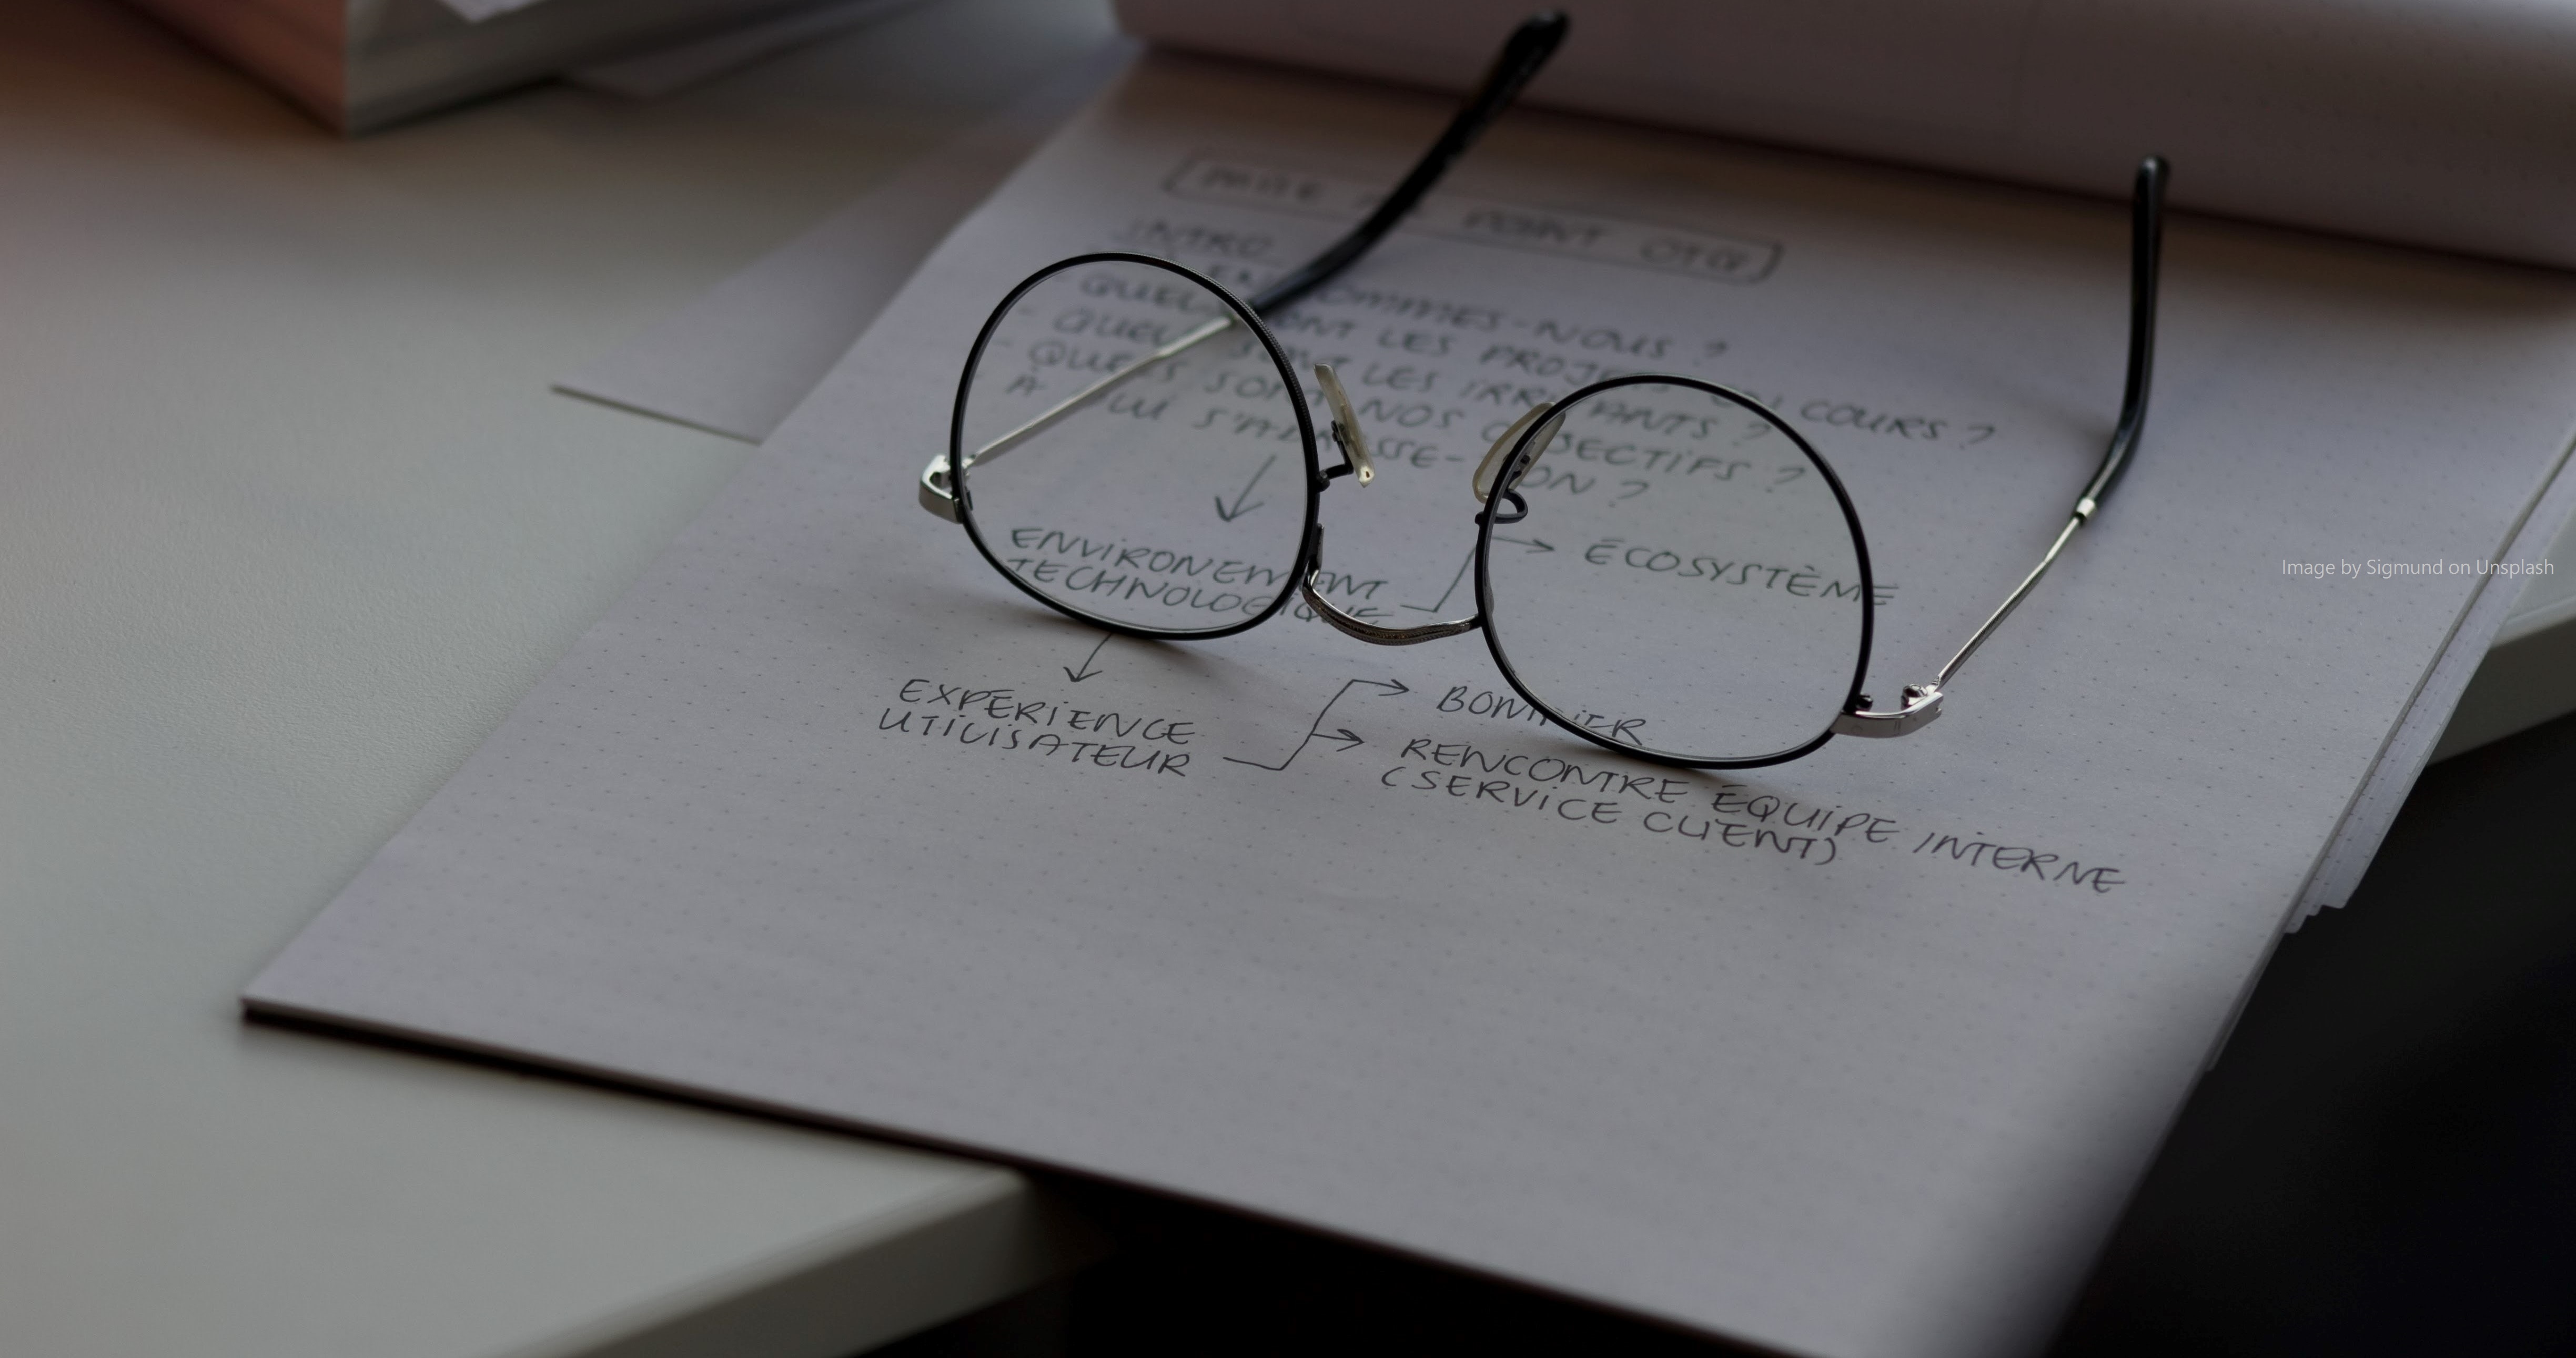 POINT
INTRO
SOMMES-NOUS ?
QUELS SONT LES PROJETS EN COURS ?
QUELS SONT LES IRRITANTS ?
QUELS SONT NOS OBJECTIFS ?
À QUI S'ADRESSE-T-ON ?
ENVIRONEMENT
TECHNOLOGIQUE
ÉCOSYSTÈME
EXPÉRIENCE
UTILISATEUR
BONIFIER
RENCONTRE ÉQUIPE INTERNE
(SERVICE CLIENT)
Image by Sigmund on Unsplash